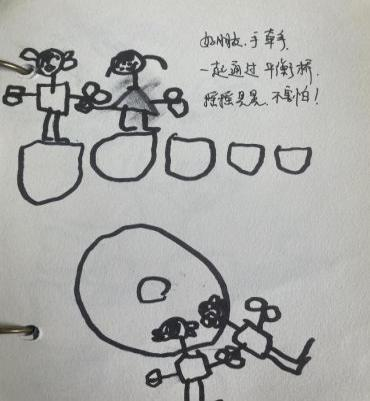 好朋友.手牵手,
一起通过平衡桥.
摇摇晃晃.不害怕!